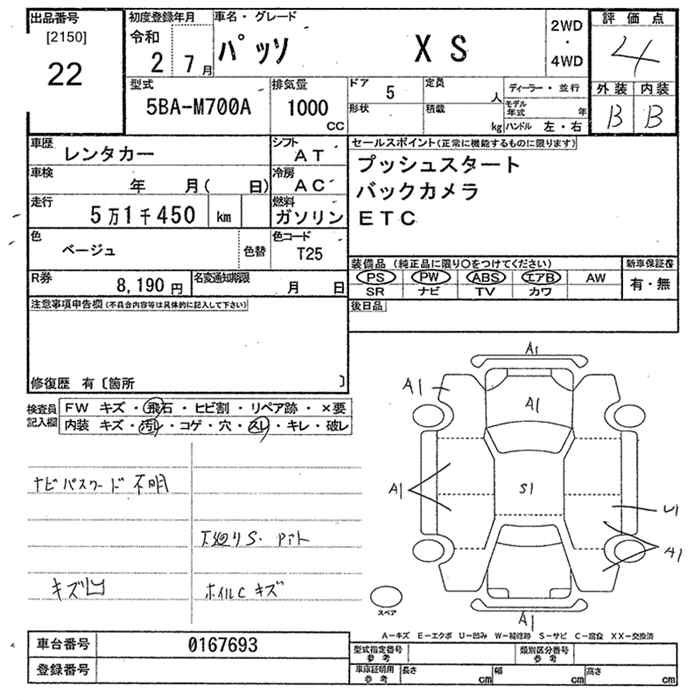 出品番号
[2150]
22
初度登録年月
令和
2 7月
車名・グレード
パッソ X S
2WD
・
4WD
評価点
4
外装 内装
B B
型式
5BA-M700A
排気量
1000
CC
ドア 5
形状
定員 人
積載 kg
ディーラー・並行
モデル年式 年
ハンドル 左・右
車歴 レンタカー
シフト AT
車検 年 月( 日)
冷房 AC
走行 5万1千450 km
燃料 ガソリン
色 ベージュ
色替
色コード T25
R券 8,190円
名変通知期限 月 日
セールスポイント(正常に機能するものに限ります)
プッシュスタート
バックカメラ
ETC
装備品 (純正品に限り〇をつけてください)
PS PW ABS エアB AW
SR ナビ TV カワ
新車保証書
有・無
後日品
注意事項申告欄(不具合内容等は具体的に記入して下さい)
修復歴 有〔箇所 〕
検査員
記入欄
FW キズ・飛石・ヒビ割・リペア跡・×要
内装 キズ・汚レ・コゲ・穴・スレ・キレ・破レ
ナビパスワード不明
下廻りS・
キズ凹
ホイルCキズ
A1
A1
A1
A1
S1
U1
A1
A1
スペア
A－キズ E－エクボ U－凹み W－補修跡 S－サビ C－腐食 XX－交換済
車台番号 0167693
登録番号
型式指定番号
参考
類別区分番号
参考
車庫証明用
参考
長さ cm
幅 cm
高さ cm